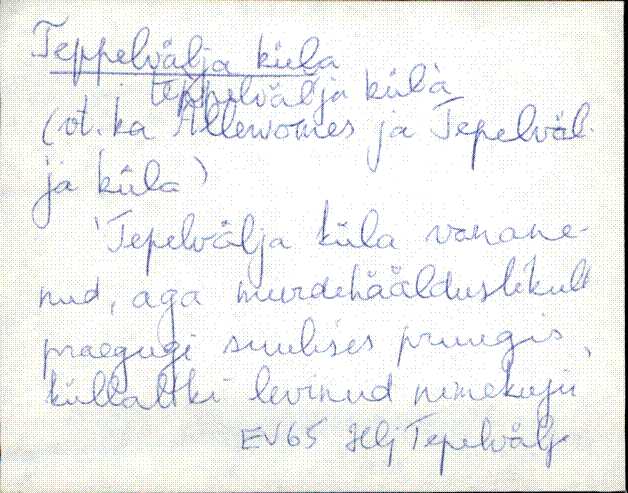 Teppelvälja küla
teppelvälja küla
(vt. ka Allewomes ja Tepelväl-
ja küla)
'Tepelvälja küla vanane-
nud, aga murdehäälduslikult
praegugi suulises pruugis
küllaltki levinud nimekuju'
EV65 Hlj Tepelvälj